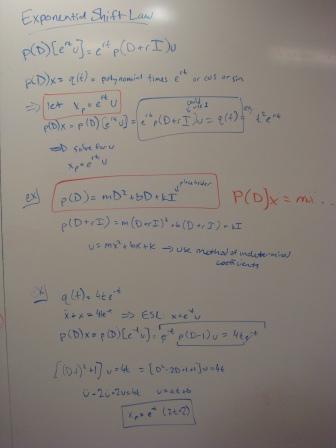 Exponential Shift Law
p(D)[e^{rt}u] = e^{rt} p(D+rI)u
p(D)x = q(t) = polynomial times e^{rt} or cos or sin
⇒ let x_p = e^{rt} u
could
p(D)x = p(D)[e^{rt}u] = e^{rt} p(D+rI)u = q(t) = t²e^{rt}
⇒ solve for u
x_p = e^{rt} u
ex) p(D) = mD² + bD + kI placeholder
P(D)x = m
p(D+rI) = m(D+rI)² + b(D+rI) + kI
→ use method of
coefficients
ex q(t) = 4te^{-t}
ẍ + x = 4te^{-t} ⇒ ESL x = e^{-t}u
p(D)x = p(D)[e^{-t}u] = e^{-t} p(D-1)u = 4te^{-t}
[(D-1)² + 1]u = 4t = [D² - 2D + 1 + 1]u = 4t
ü - 2u̇ + 2u = 4t u = at + b
x_p = e^{-t}(2t + 2)